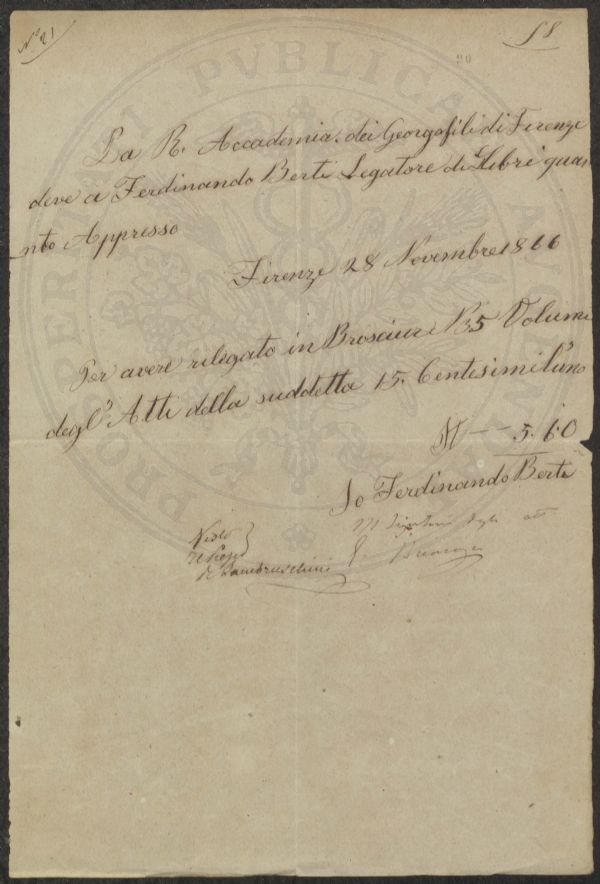 N° 21
58
20
La R. Accademia dei Georgofili di Firenze
deve a Ferdinando Berti Legatore di Libri quan
nto Appresso
Firenze 28 Novembre 1866
Per avere rilegato in Brosciure N 35 Volumi
degl' Atti della suddetta 15. Centesimi l'uno
5. 60
Io Ferdinando Berti
Visto
R. Lambruschini
PROSPERITATI PVBLICAE AVGENDAE